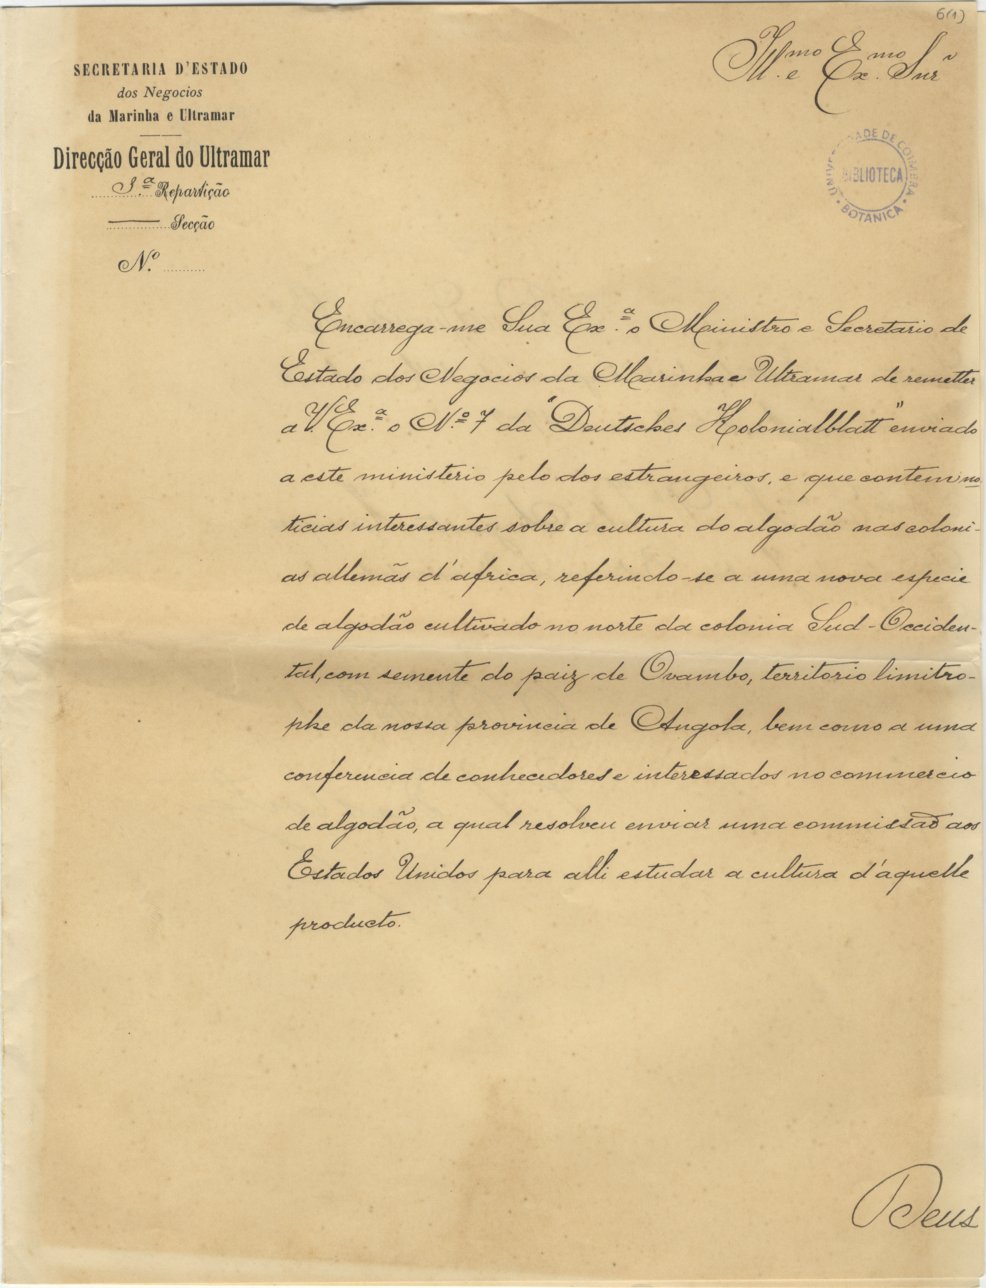 6(1)
Ill.mo e Ex.mo Snr
SECRETARIA D'ESTADO
dos Negocios
da Marinha e Ultramar
Direcção Geral do Ultramar
3.ª Repartição
Secção
N.º
UNIVERSIDADE DE COIMBRA
BIBLIOTECA
BOTANICA
Encarrega-me Sua Ex.ª o Ministro e Secretario de
Estado dos Negocios da Marinha e Ultramar de remetter
a V. Ex.ª o N.º 7 da "Deutsches Kolonialblatt" enviado
a este ministerio pelo dos estrangeiros, e que contem no
ticias interessantes sobre a cultura do algodão nas coloni-
as allemãs d'africa, referindo-se a uma nova especie
de algodão cultivado no norte da colonia Sud-Occiden-
tal, com semente do paiz de Ovambo, territorio limitro-
phe da nossa provincia de Angola, bem como a uma
conferencia de conhecedores e interessados no commercio
de algodão, a qual resolveu enviar uma commissão aos
Estados Unidos para alli estudar a cultura d'aquelle
producto.
Deus